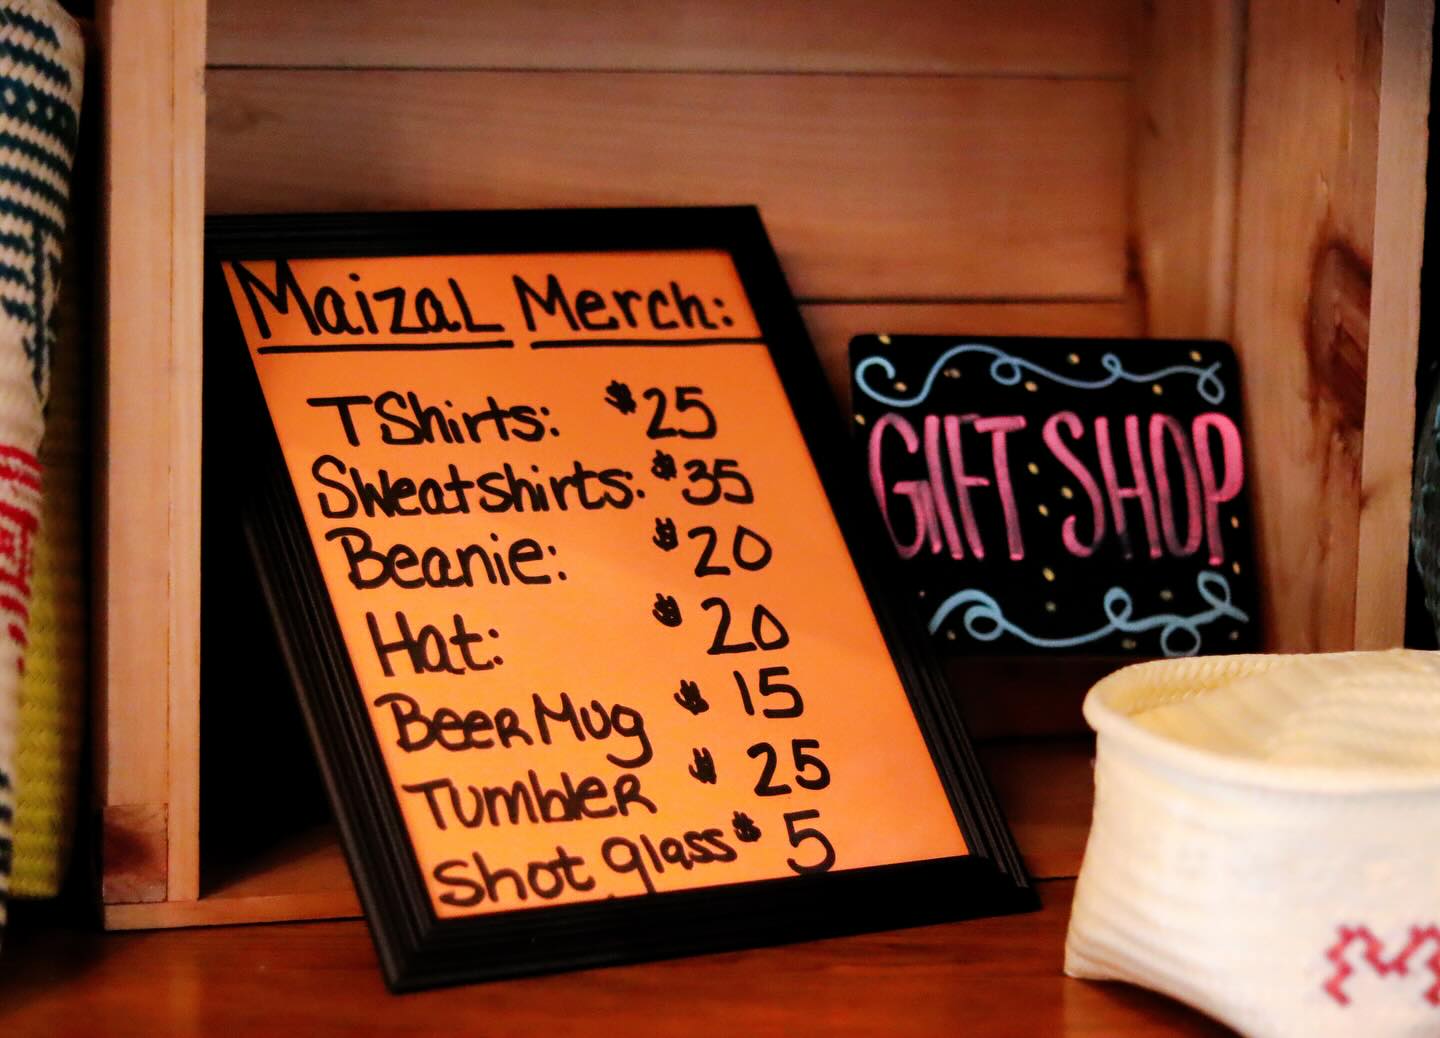 Maizal Merch:
TShirts: $25
Sweatshirts: $35
Beanie: $20
Hat: $20
Beer Mug $15
Tumbler $25
Shot glass $5
GIFT SHOP